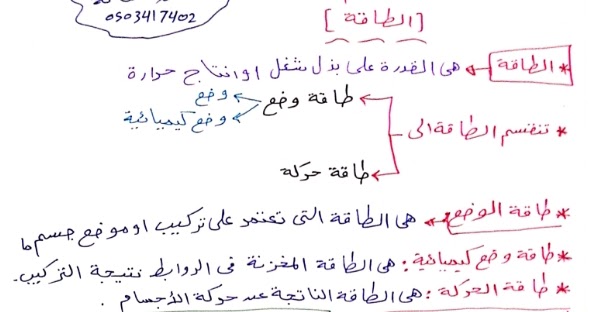 0503417402
[الطاقة]
* الطاقة ← هي القدرة على بذل شغل او انتاج حرارة
طاقة وضع ← وضع
وضع كيميائية
* تنقسم الطاقة الى
طاقة حركة
* طاقة الوضع ← هي الطاقة التي تعتمد على تركيب او موضع جسم ما
* طاقة وضع كيميائية : هي الطاقة المخزنة في الروابط نتيجة التركيب.
* طاقة الحركة : هي الطاقة الناتجة عن حركة الأجسام .